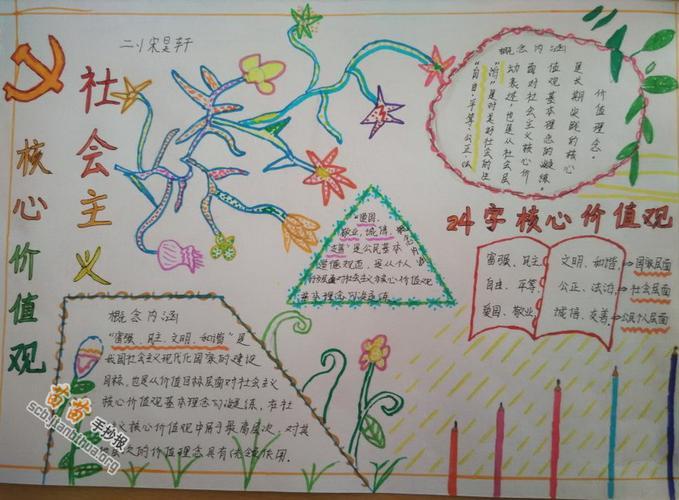 二小宋昱轩
社会主义
核心价值观
概念内涵
价值理念。
是长期实践的核心
值观基本理念的凝练。
面对社会主义核心价
动表述，也是从社会层
"治"是对美好社会的生
"自由、平等、公正、法
"爱国、
敬业、诚信、
友善"是公民基本
道德规范，是从个人
行为层面对社会主义核心价值观
基本理念的凝练
概念内涵
24字核心价值观
富强、民主、
自由、平等、
爱国、敬业、
文明、和谐
公正、法治、
诚信、友善、
国家层面
社会层面
公民个人层面
概念内涵
"富强、民主、文明、和谐"是
我国社会主义现代化国家的建设
目标，也是从价值目标层面对社会主义
核心价值观基本理念的凝练，在社
会主义核心价值观中居于最高层次，对其
他层次的价值理念具有统领作用。
苗苗
手抄报